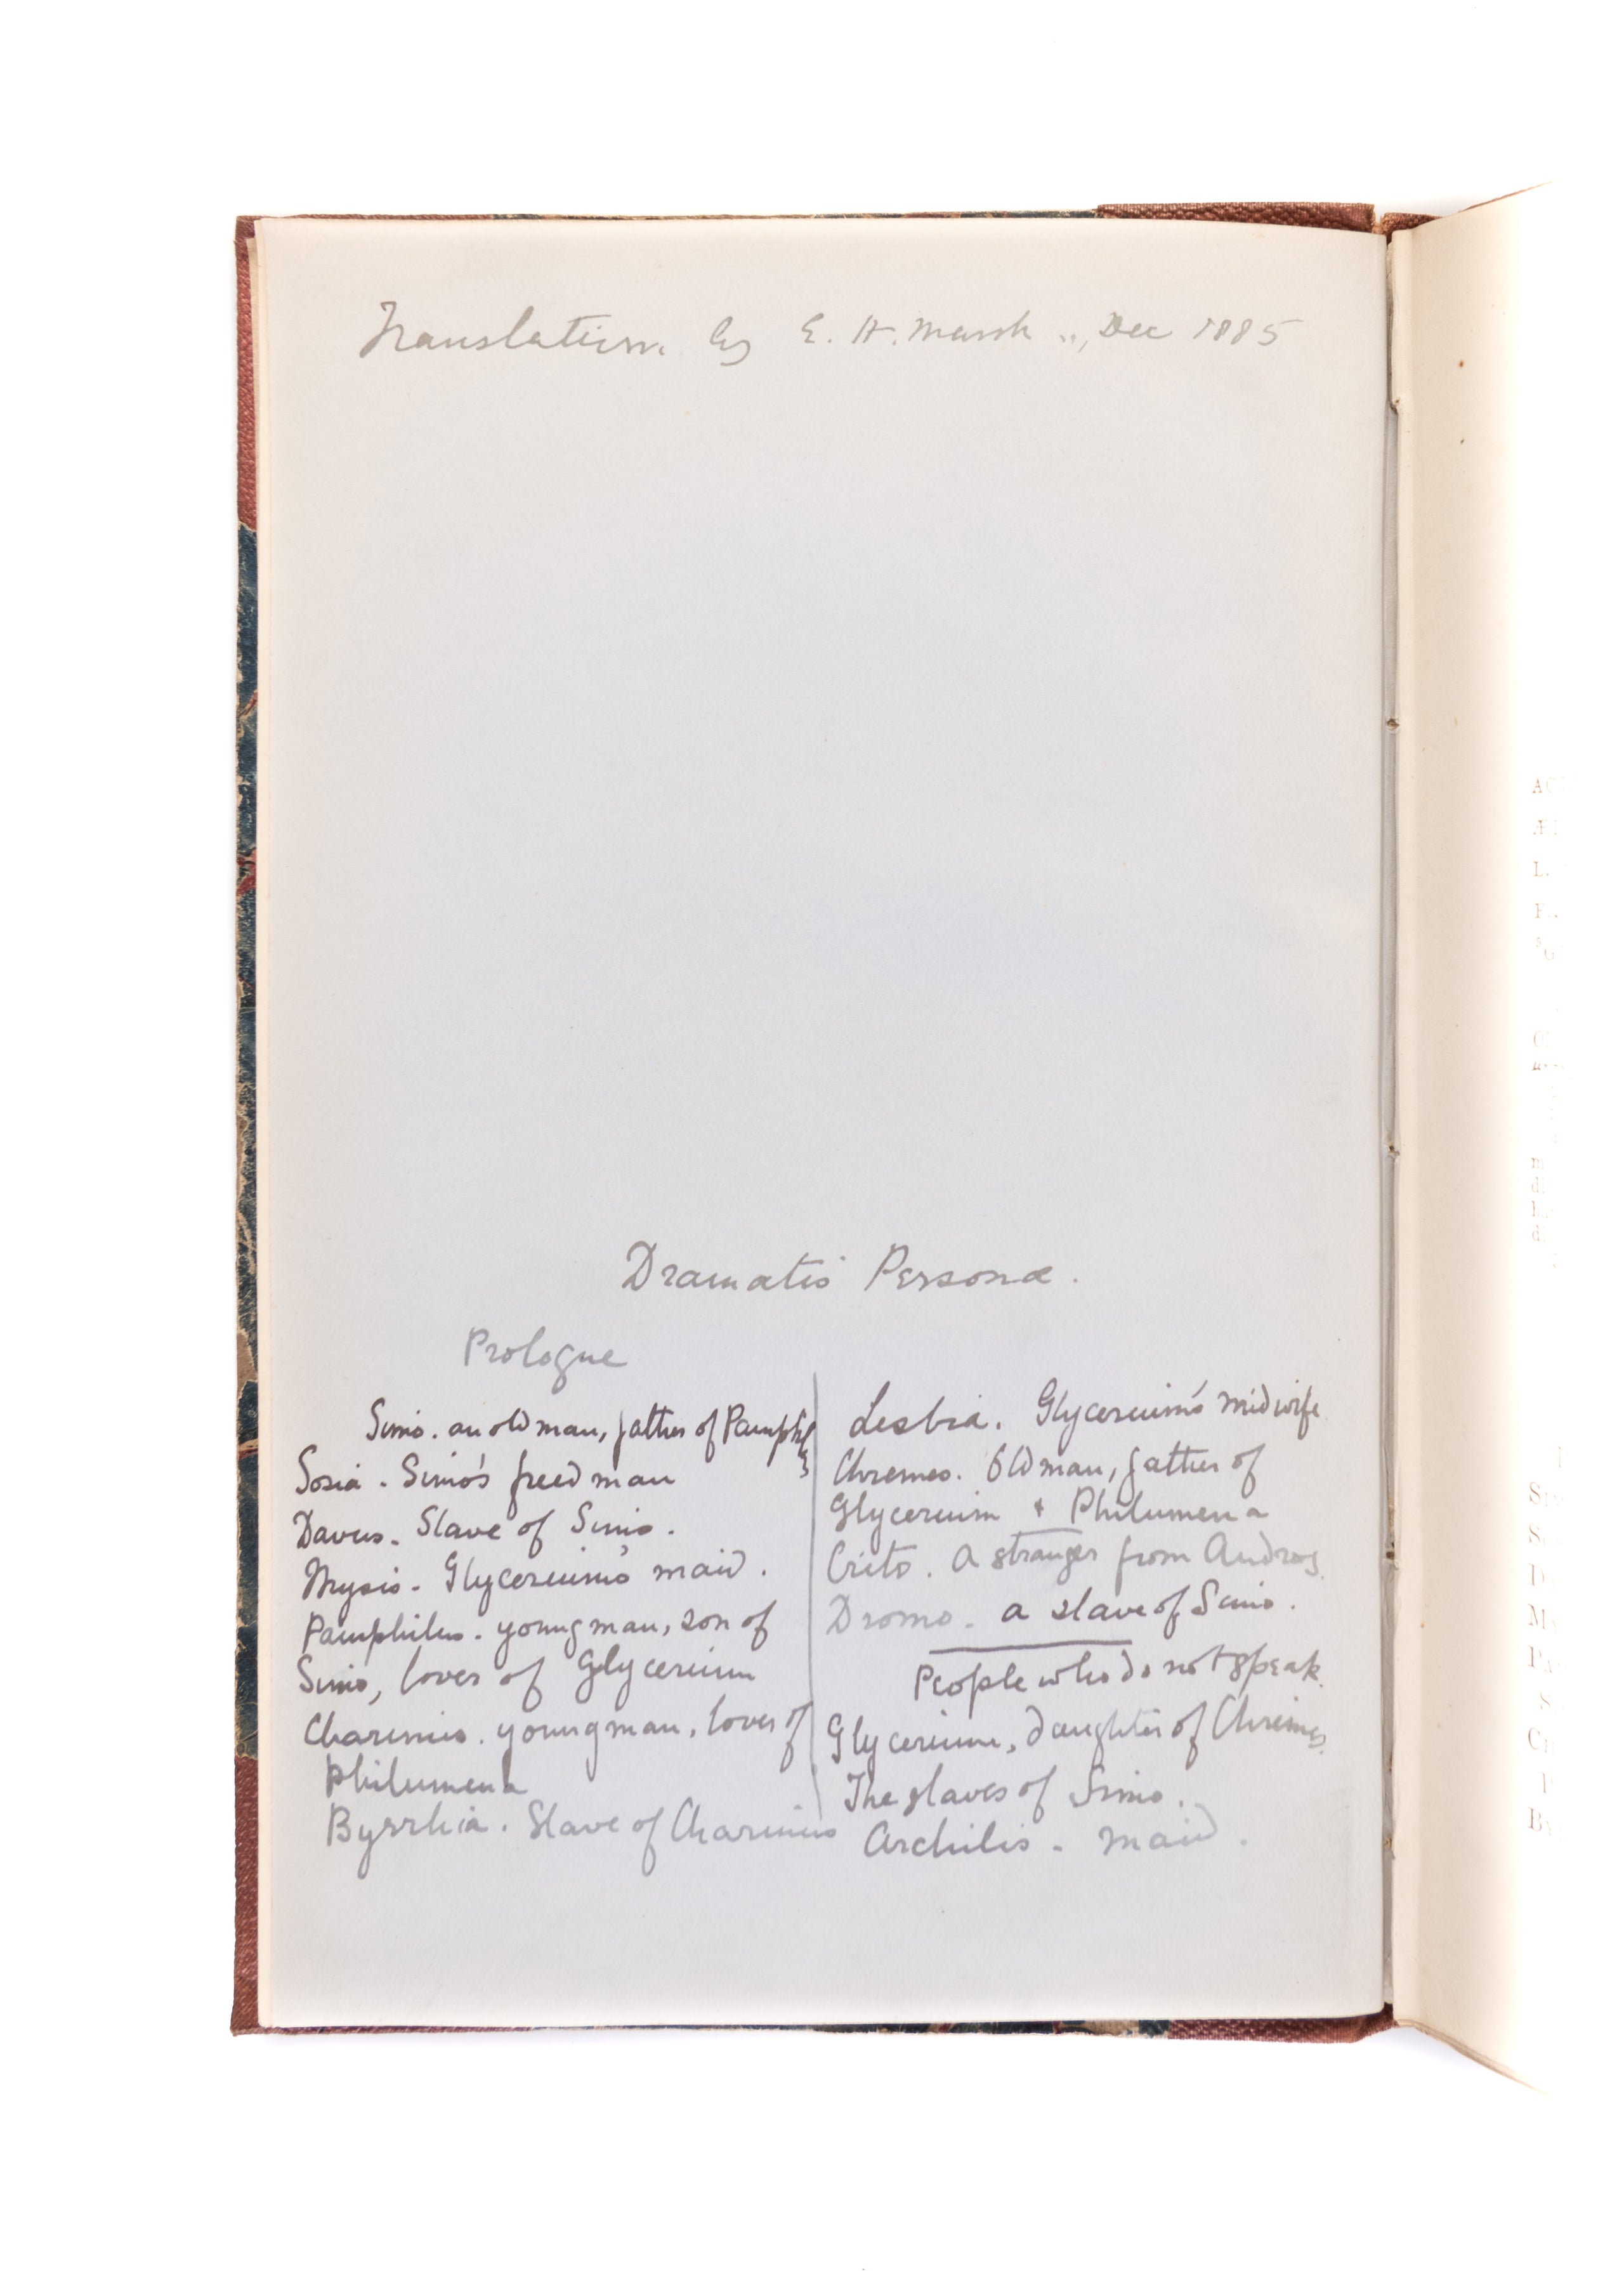 Translation by E. H. Marsh ,,, Dec 1885
Dramatis Personæ.
Prologue
Simo. an old man, father of Pamphil
s
Sosia - Simo's freed man
Davus - Slave of Simo.
Mysis - Glycereium's maid.
Pamphilus - young man, son of
Simo, lover of Glycereium
Charinus. young man, lover of
Philumena
Byrrhia. Slave of Charinus
Lesbia. Glycereium's midwife
Chremes. Old man, father of
Glycereium & Philumena
Crito. A stranger from Andros.
Dromo - a slave of Simo.
People who do not speak.
Glycerium, daughter of Chremes.
The slaves of Simo.
Archilis - maid.
AC
Æ
L.
m
d
S
D
M
Pa
S
C
P
By